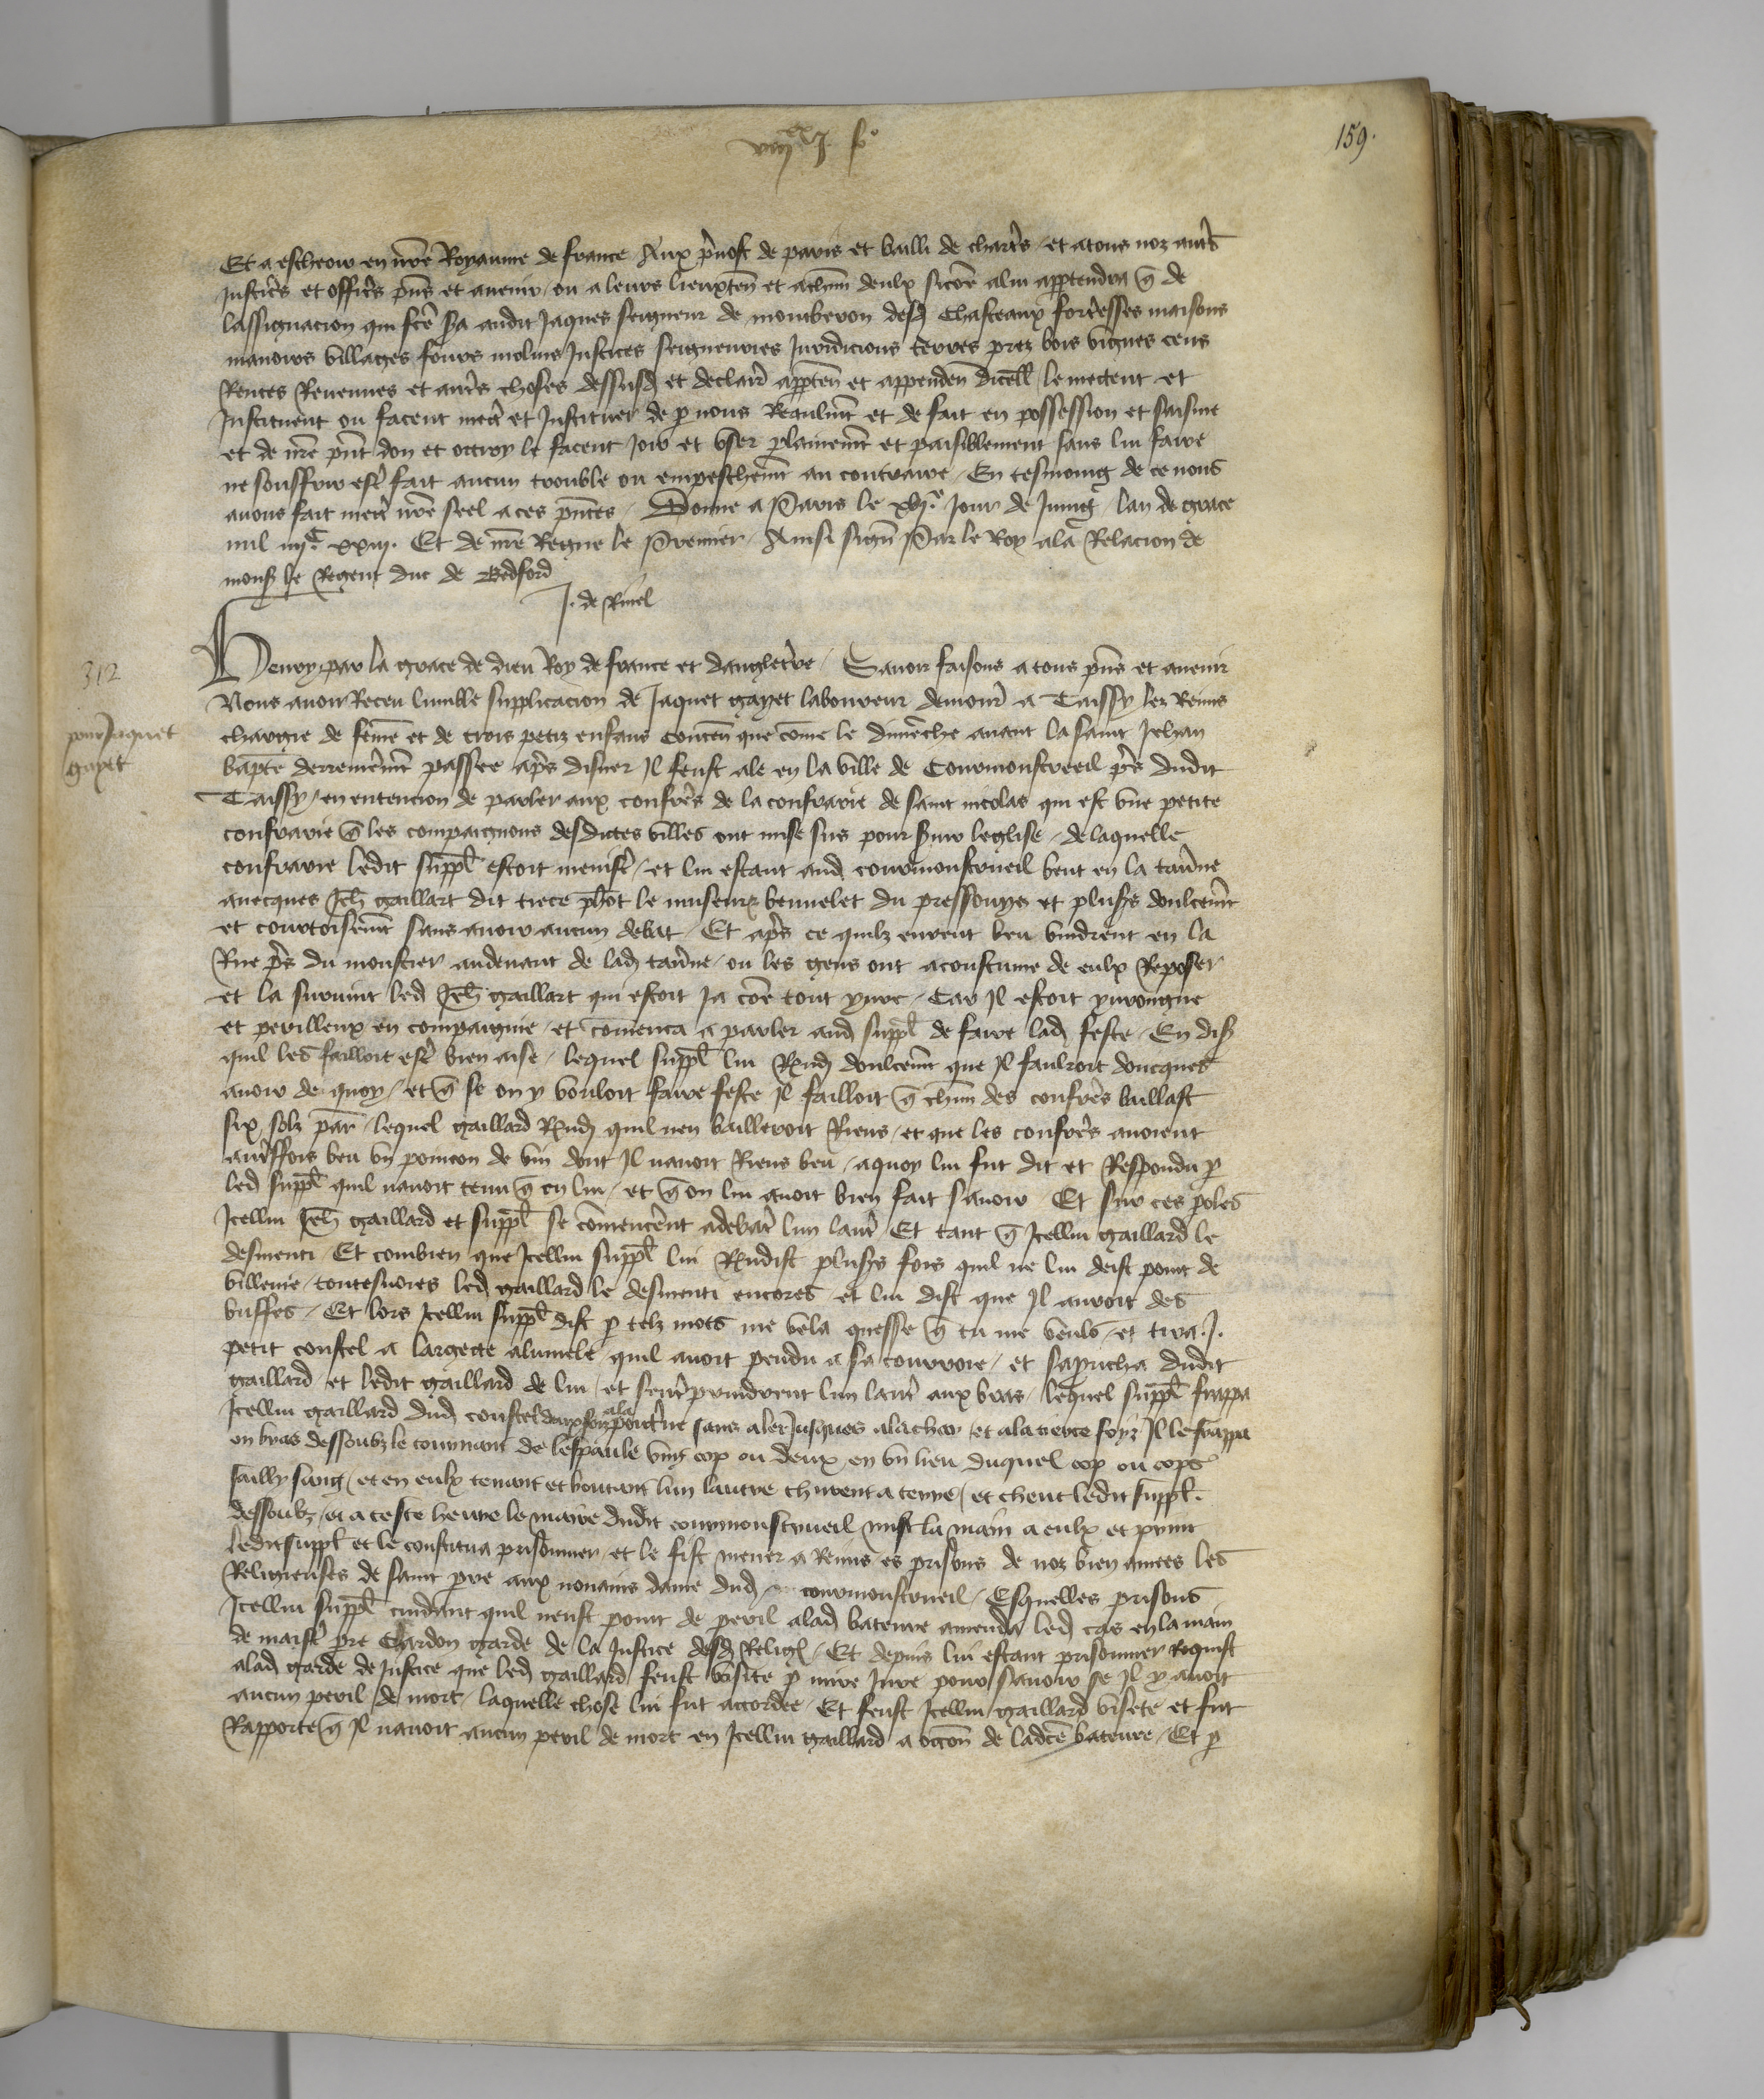 159.
Et a escheoir en nr̃e Royaume de france Aux p̃uost de paris et bailli de chartr̃s et a tous noz autr̃s
Justic̃rs et offic̃rs p̃ns et auenir ou a leurs lieuxteñ et a chũn deulx sicõe a lui app̃tendra q̃ de
lassignacion qui fc̃e s̃a audit Jaques seigneur de montberon desd chasteaux fort̃esses maisons
manoirs villages fours molins Justices seigneuries Juridicions terres prez bois vignes cens
Rentes Reuenues et autr̃s choses dessusd et declair̃ app̃ten̄ et appenden̄ dicell̃ le mettent et
Instituent ou facent mettr̃ et Instituer de p nous Reaulmt̃ et de fait en possession et saisine
et de nr̃e p̃nt don et ottroy le facent Joir et vser plainemt̃ et paisiblement sans lui faire
ne souffrir estr̃ fait aucun trouble ou empeschemt̃ au contraire En tesmoing de ce nous
auons fait mettr̃ nr̃e seel a ces p̃ntes Donne a Paris le xvj.e Jour de Juing lan de grace
mil iiij.C xxiij. Et de nr̃e Regne le Premier Ainsi sign̄ Par le Roy a la Relacion de
mons̃ le Regent duc de Bedford
J. de Rinel
312
Henry par la grace de dieu Roy de france et dangleterre Sauoir faisons a tous p̃ns et auenir
Nous auoir Receu lumble supplicacion de Jaquet gayet laboureur demour̃ a Taissy lez Reims
pour Jaquet
gayet
chargie de fem̃e et de trois petiz enfans conten̄ que cõme le dimẽche auant la saint Jehan
bap̃te derrenierem̃t passee apr̃s disner Il feust ale en la ville de Courmonstrueil pr̃s dudit
Taissy en entencion de parler aux confrer̃s de la confrarie de saint nicolas qui est vne petite
confrarie q̃ les compaignons desdictes villes ont mise sus pour s̃uir leglise de laquelle
confrarie ledit suppl̃ estoit menistr̃ et lui estant aud courmonstrueil beut en la tau̾ne
auecques Jeh̃ gaillart dit tiece le museur bennelet du pressouyer et plus̃s doulcemt̃
et courtoisemt̃ sans auoir aucun debat Et apr̃s ce quilz eurent beu vindrent en la
Rue pr̃s du monstier au deuant de lad tau̾ne ou les gens ont acoustume de eulx Reposer
et la suruint led Jeh̃ gaillart qui estoit Ja cõe tout yure Car Il estoit yurongne
et perilleux en compaignie et cõmenca a parler aud suppl̃ de faire lad feste En dis̃
quil les failloit estr̃ bien aise lequel suppl̃ lui Rñdi doulcemt̃ que Il fauldroit doncques
auoir de quoy et q̃ se on y vouloit faire feste Il failloit q̃ chũn des confrer̃s baillast
six solz par̃ lequel gaillard Rñdi quil nen bailleroit Riens et que les confrer̃s auoient
autr̃ffois beu vn poincon de vin dont Il nauoit Riens beu a quoy lui fut dit et Respondu p
led suppl̃ quil nauoit tenu q̃ en lui et q̃ on lui auoit bien fait sauoir Et sur ces p̃oles
Icellui Jeh̃ gaillard et suppl̃ se cõmencer̃nt a debatr̃ lun lautr̃ Et tant q̃ Icellui gaillard le
desmenti Et combien que Icellui suppl̃ lui Rñdist plus̃s fois quil ne lui deist point de
villenie toutesuoies led gaillard le desmenti encores et lui dist que Il auroit des
buffes Et lors Icellui suppl̃ dist p telz mots me vela quesse q̃ tu me veulz et tira .J.
petit coustel a largecte alumele quil auoit pendu a sa courroie et sapricha dudit
gaillard et ledit gaillard de lui et sentr̃prindrent lun lautr̃ aux bras lequel suppl̃ frappa
Icellui gaillard dud coustel deux foiz a la poitr̃ne sans aler Jusques a la char et a la tierce foyz Il le frappa
ou bras dessoubz le tournant de lespaule vng cop ou deux en vn lieu duquel cop ou cops
sailly sang et en eulx tenant et boutant lun lautre churent a terre et cheut ledit suppl̃.
dessoubz et a ceste heure le maire dudit courmonstrueil mist la main a eulx et print
ledit suppl̃ et le constitua prisonnier et le fist mener a Reims es prisons de noz bien amees les
Religieuses de saint p̃re aux nonains dame dud courmonstrueil Esquelles prisons
Icellui suppl̃ cuidant quil neust point de peril a lad bateure amenda led cas en la main
de maistr̃ p̃re Chardon garde de la Justice desd Relig̃ Et depuis lui estant prisonnier Requist
a lad garde de Justice que led gaillard feust visite p mire Jure pour sauoir se Il y auoit
aucun peril de mort laquelle chose lui fut accordee Et feust Icellui gaillard visete et fut
Rapporte q̃ Il nauoit aucun peril de mort en Icellui gaillard a occon̄ de ladcẽ bateure Et p